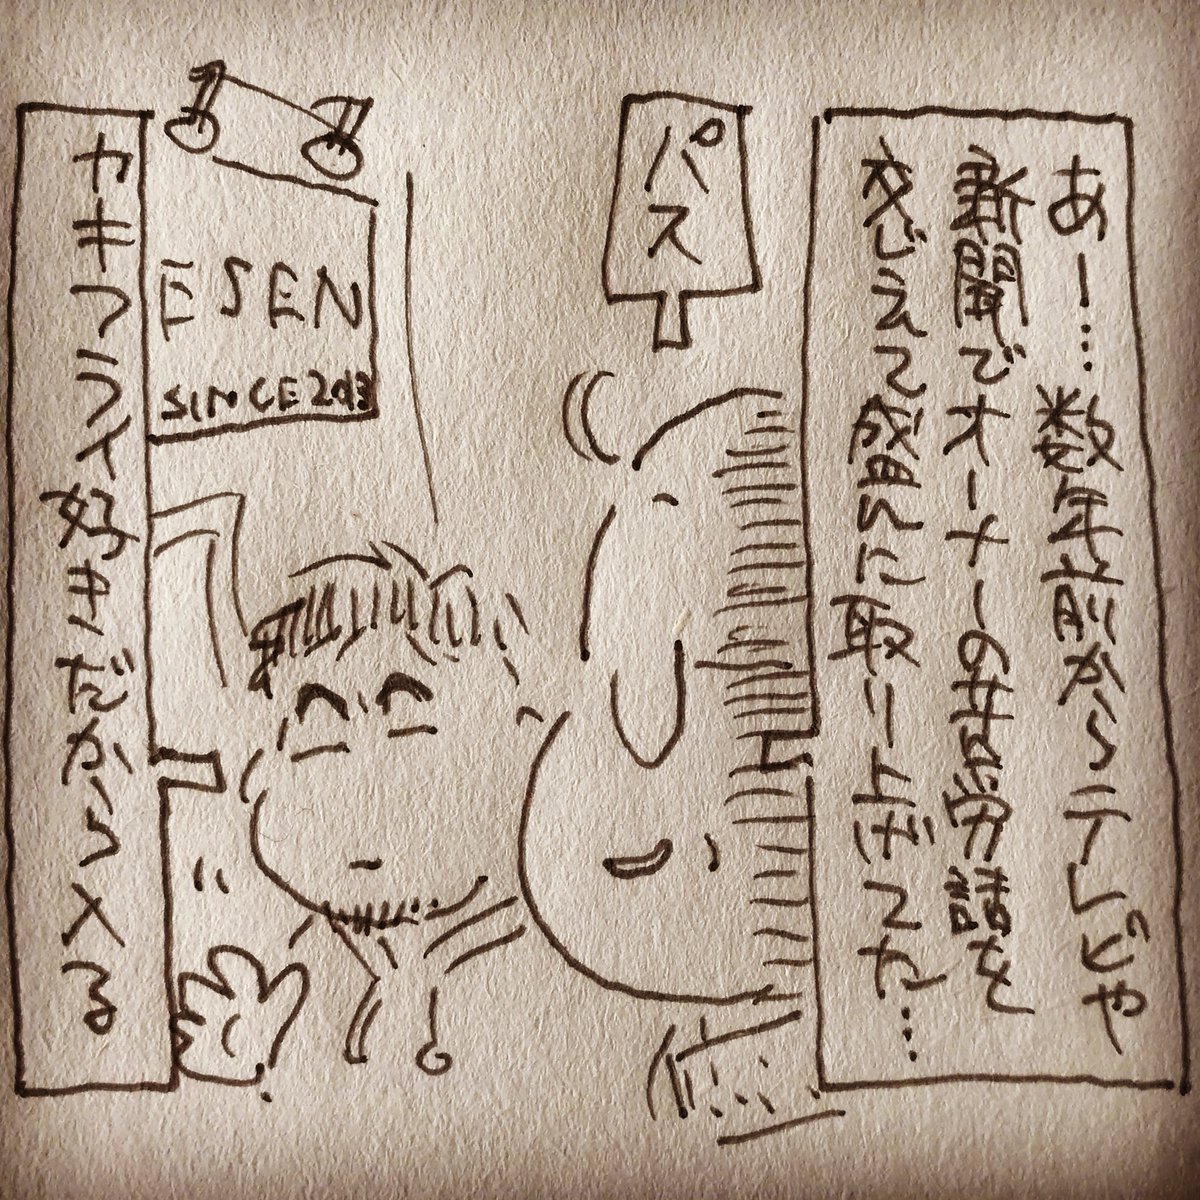 あー…数年前からテレビや
新聞でオーナーの苦労話を
交じえて盛んに取り上げてた…
パス
ESEN
SINCE 2013
カキフライ好きだから入る